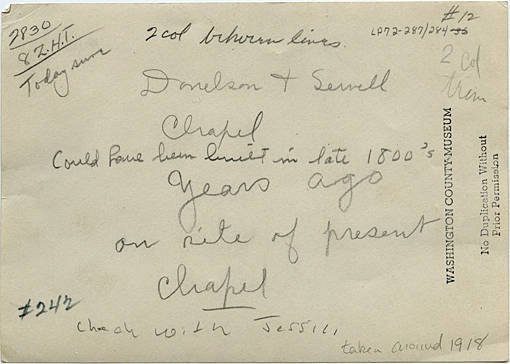 2830
8 Z.H.T.
Today sure
2 col between lines.
#12
LP72-287/284-35
2 col
trim
Donelson & Sewell
Chapel
Could have been built in late 1800's
Years ago
on site of present
Chapel
#242
Check with Jessill
taken around 1918
WASHINGTON COUNTY MUSEUM
No Duplication Without
Prior Permission